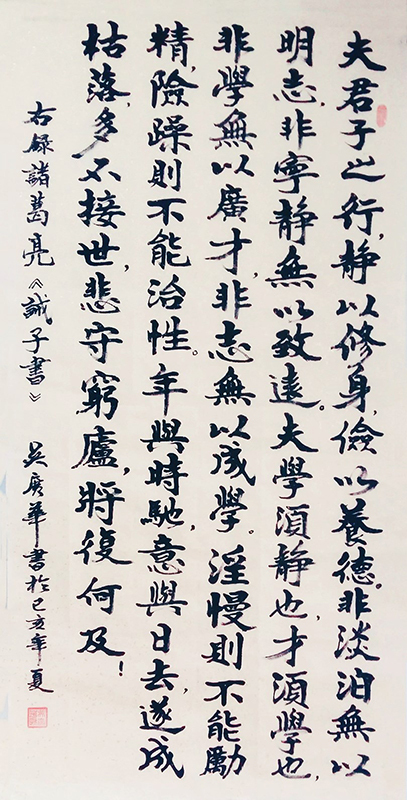 夫君子之行,静以修身,儉以養德。非淡泊無以
明志,非寧静無以致遠。夫學須静也,才須學也,
非學無以廣才,非志無以成學。淫慢則不能勵
精,險躁則不能治性。年與時馳,意與日去,遂成
枯落,多不接世,悲守窮廬,將復何及!
右録諸葛亮《誡子書》 吴廣華書於己亥年夏